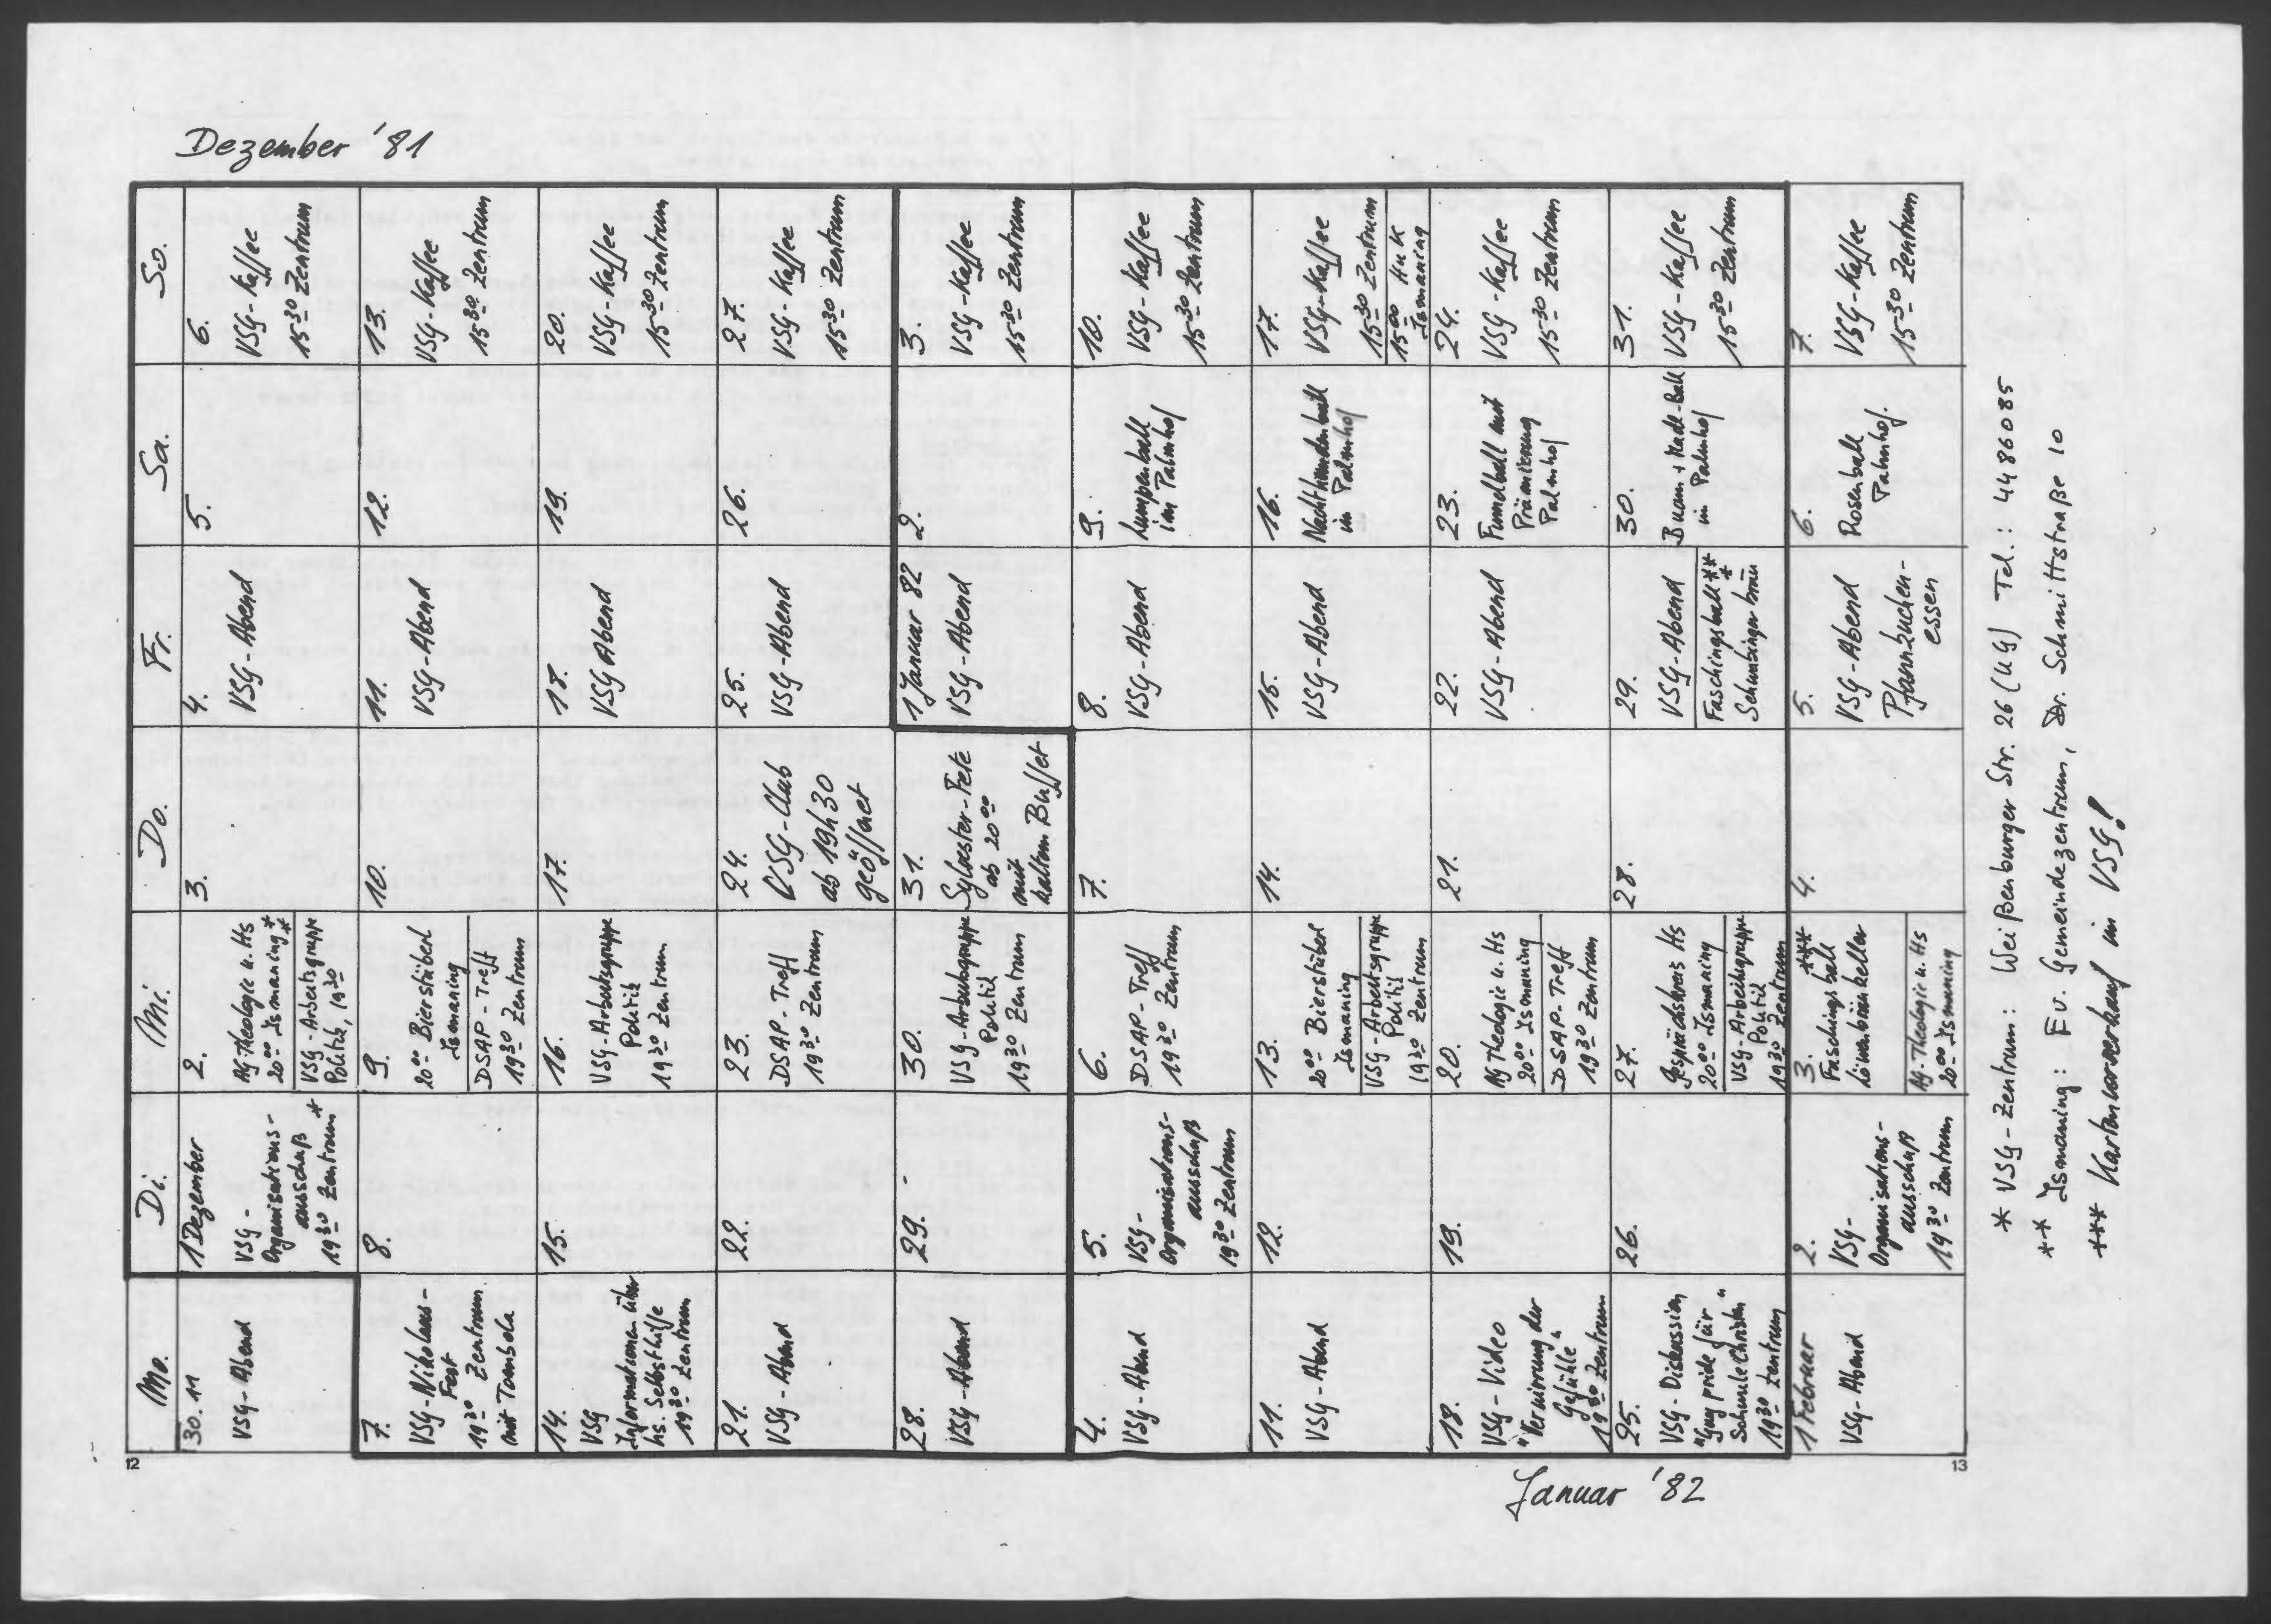 Dezember '81
Mo.
Di.
Mi.
Do.
Fr.
Sa.
So.
30.11
VSG-Abend
1 Dezember
VSG-
Organisations-
ausschuß
19 30 Zentrum *
2.
AG-Theologie u. Hs
20 00 Ismaning **
VSG-Arbeitsgruppe
Politik, 19 30
3.
4.
VSG-Abend
5.
6.
VSG-Kaffee
15 30 Zentrum
7.
VSG-Nikolaus-
Fest
19 30 Zentrum
mit Tombola
8.
9.
20 00 Bierstüberl
Ismaning
DSAP-Treff
19 30 Zentrum
10.
11.
VSG-Abend
12.
13.
VSG-Kaffee
15 30 Zentrum
14.
VSG
Informationen über
hs. Selbsthilfe
19 30 Zentrum
15.
16.
VSG-Arbeitsgruppe
Politik
19 30 Zentrum
17.
18.
VSG Abend
19.
20.
VSG-Kaffee
15 30 Zentrum
21.
VSG-Abend
22.
23.
DSAP-Treff
19 30 Zentrum
24.
VSG-Club
ab 19h30
geöffnet
25.
VSG-Abend
26.
27.
VSG-Kaffee
15 30 Zentrum
28.
VSG-Abend
29.
30.
VSG-Arbeitsgruppe
Politik
19 30 Zentrum
31.
Sylvester-Fete
ab 20 00
mit
kaltem Buffet
1 Januar 82
VSG-Abend
2.
3.
VSG-Kaffee
15 30 Zentrum
4.
VSG-Abend
5.
VSG-
Organisations-
ausschuß
19 30 Zentrum
6.
DSAP-Treff
19 30 Zentrum
7.
8.
VSG-Abend
9.
Lumpenball
im Palmhof
10.
VSG-Kaffee
15 30 Zentrum
11.
VSG-Abend
12.
13.
20 00 Bierstüberl
Ismaning
VSG-Arbeitsgruppe
Politik
19 30 Zentrum
14.
15.
VSG-Abend
16.
Nachthemdenball
im Palmhof
17.
VSG-Kaffee
15 30 Zentrum
15 00 HuK
Ismaning
18.
VSG-Video
"Verwirrung der
Gefühle"
19 30 Zentrum
19.
20.
AG Theologie u. Hs
20 00 Ismaning
DSAP-Treff
19 30 Zentrum
21.
22.
VSG-Abend
23.
Fummelball mit
Prämierung
Palmhof
24.
VSG-Kaffee
15 30 Zentrum
25.
VSG-Diskussion
"Gay pride für
Schwule Christen"
19 30 Zentrum
26.
27.
Gesprächskreis Hs
20 00 Ismaning
VSG-Arbeitsgruppe
Politik
19 30 Zentrum
28.
29.
VSG-Abend
Faschingsball ***
Schwabingerbräu
30.
Buam + Madl-Ball
im Palmhof
31.
VSG-Kaffee
15 30 Zentrum
1 Februar
VSG-Abend
2.
VSG-
Organisations-
ausschuß
19 30 Zentrum
3.
Faschingsball ***
Löwenbräukeller
AG-Theologie u. Hs
20 00 Ismaning
4.
5.
VSG-Abend
Pfannkuchen-
essen
6.
Rosenball
Palmhof.
7.
VSG-Kaffee
15 30 Zentrum
Januar '82
* VSG-Zentrum: Weißenburger Str. 26 (UG) Tel.: 4486085
** Ismaning: Ev. Gemeindezentrum, Dr. Schmittstraße 10
*** Kartenvorverkauf im VSG!
12
13